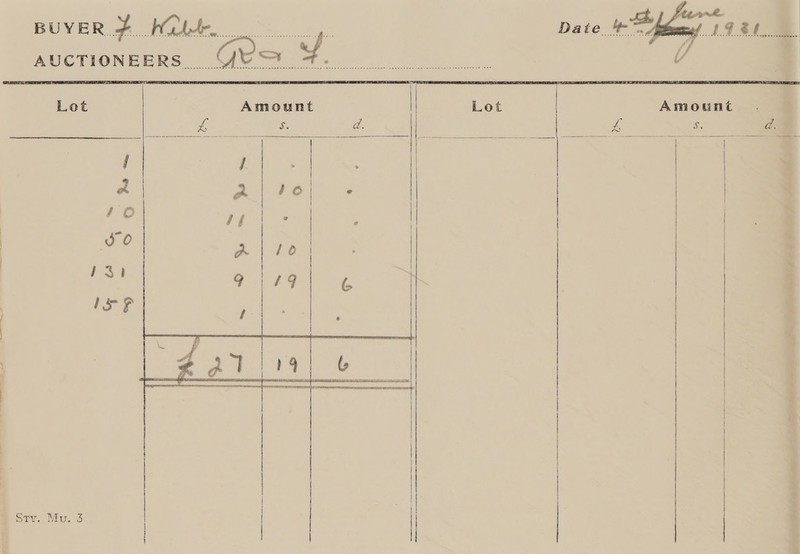 BUYER F Webb. Date 4th June 1931
AUCTIONEERS R & F.
Lot Amount Lot Amount
£ s. d. £ s. d.
1 1 . .
2 2 10 .
10 11 . .
50 2 10 .
131 9 19 6
158 1 . .
£ 27 19 6
STY. MU. 3